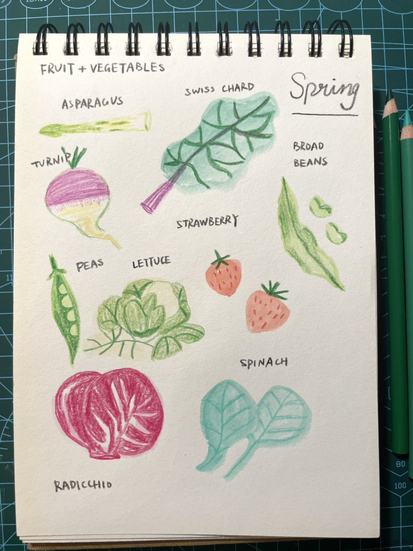 FRUIT + VEGETABLES
Spring
ASPARAGUS
SWISS CHARD
TURNIP
BROAD
BEANS
STRAWBERRY
PEAS
LETTUCE
SPINACH
RADICCHIO
80
100